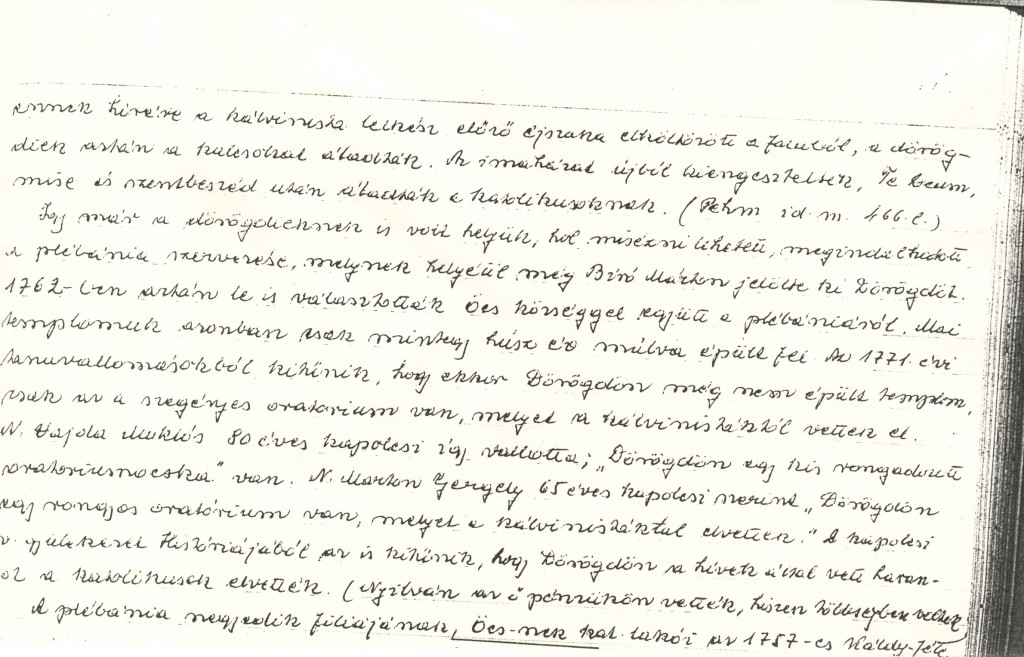 ennek hírére a kálvinista lelkész előző éjszaka elköltözött a faluból, a dörög-
diek aztán a kulcsokat átadták. Az imaházat újból kiengesztelték, Te Deum,
mise és szentbeszéd után átadták a katolikusoknak. (Pehm id. m. 466. l.)
Így már a dörögdieknek is volt helyük, hol misézni lehetett, megindulhatott
a plébánia szervezése, melynek helyéül még Bíró Márton jelölte ki Dörögdöt.
1762-ben aztán le is választották Öcs községgel együtt a plébániáról. Mai
templomuk azonban csak mintegy húsz év múlva épült fel. Az 1771. évi
tanuvallomásokból kitűnik, hogy ekkor Dörögdön még nem épült templom,
csak az a szegényes oratorium van, melyet a kálvinistáktól vettek el.
N. Vajda Miklós 80 éves kapolcsi így vallotta; „Dörögdön egy kis rongadozott
oratoriumocska" van. N. Marton Gergely 65 éves kapolcsi szerint „Dörögdön
egy rongyos oratórium van, melyet a kálvinistáktul elvettek." A kapolcsi
gyülekezet Históriájából az is kitűnik, hogy Dörögdön a hívek által vett haran-
got a katolikusok elvették. (Nyilván az ő pénzükön vették, hiszen többségben voltak.)
A plébánia negyedik filiájának, Öcs-nek kat. lakói az 1757-es Váldy-féle